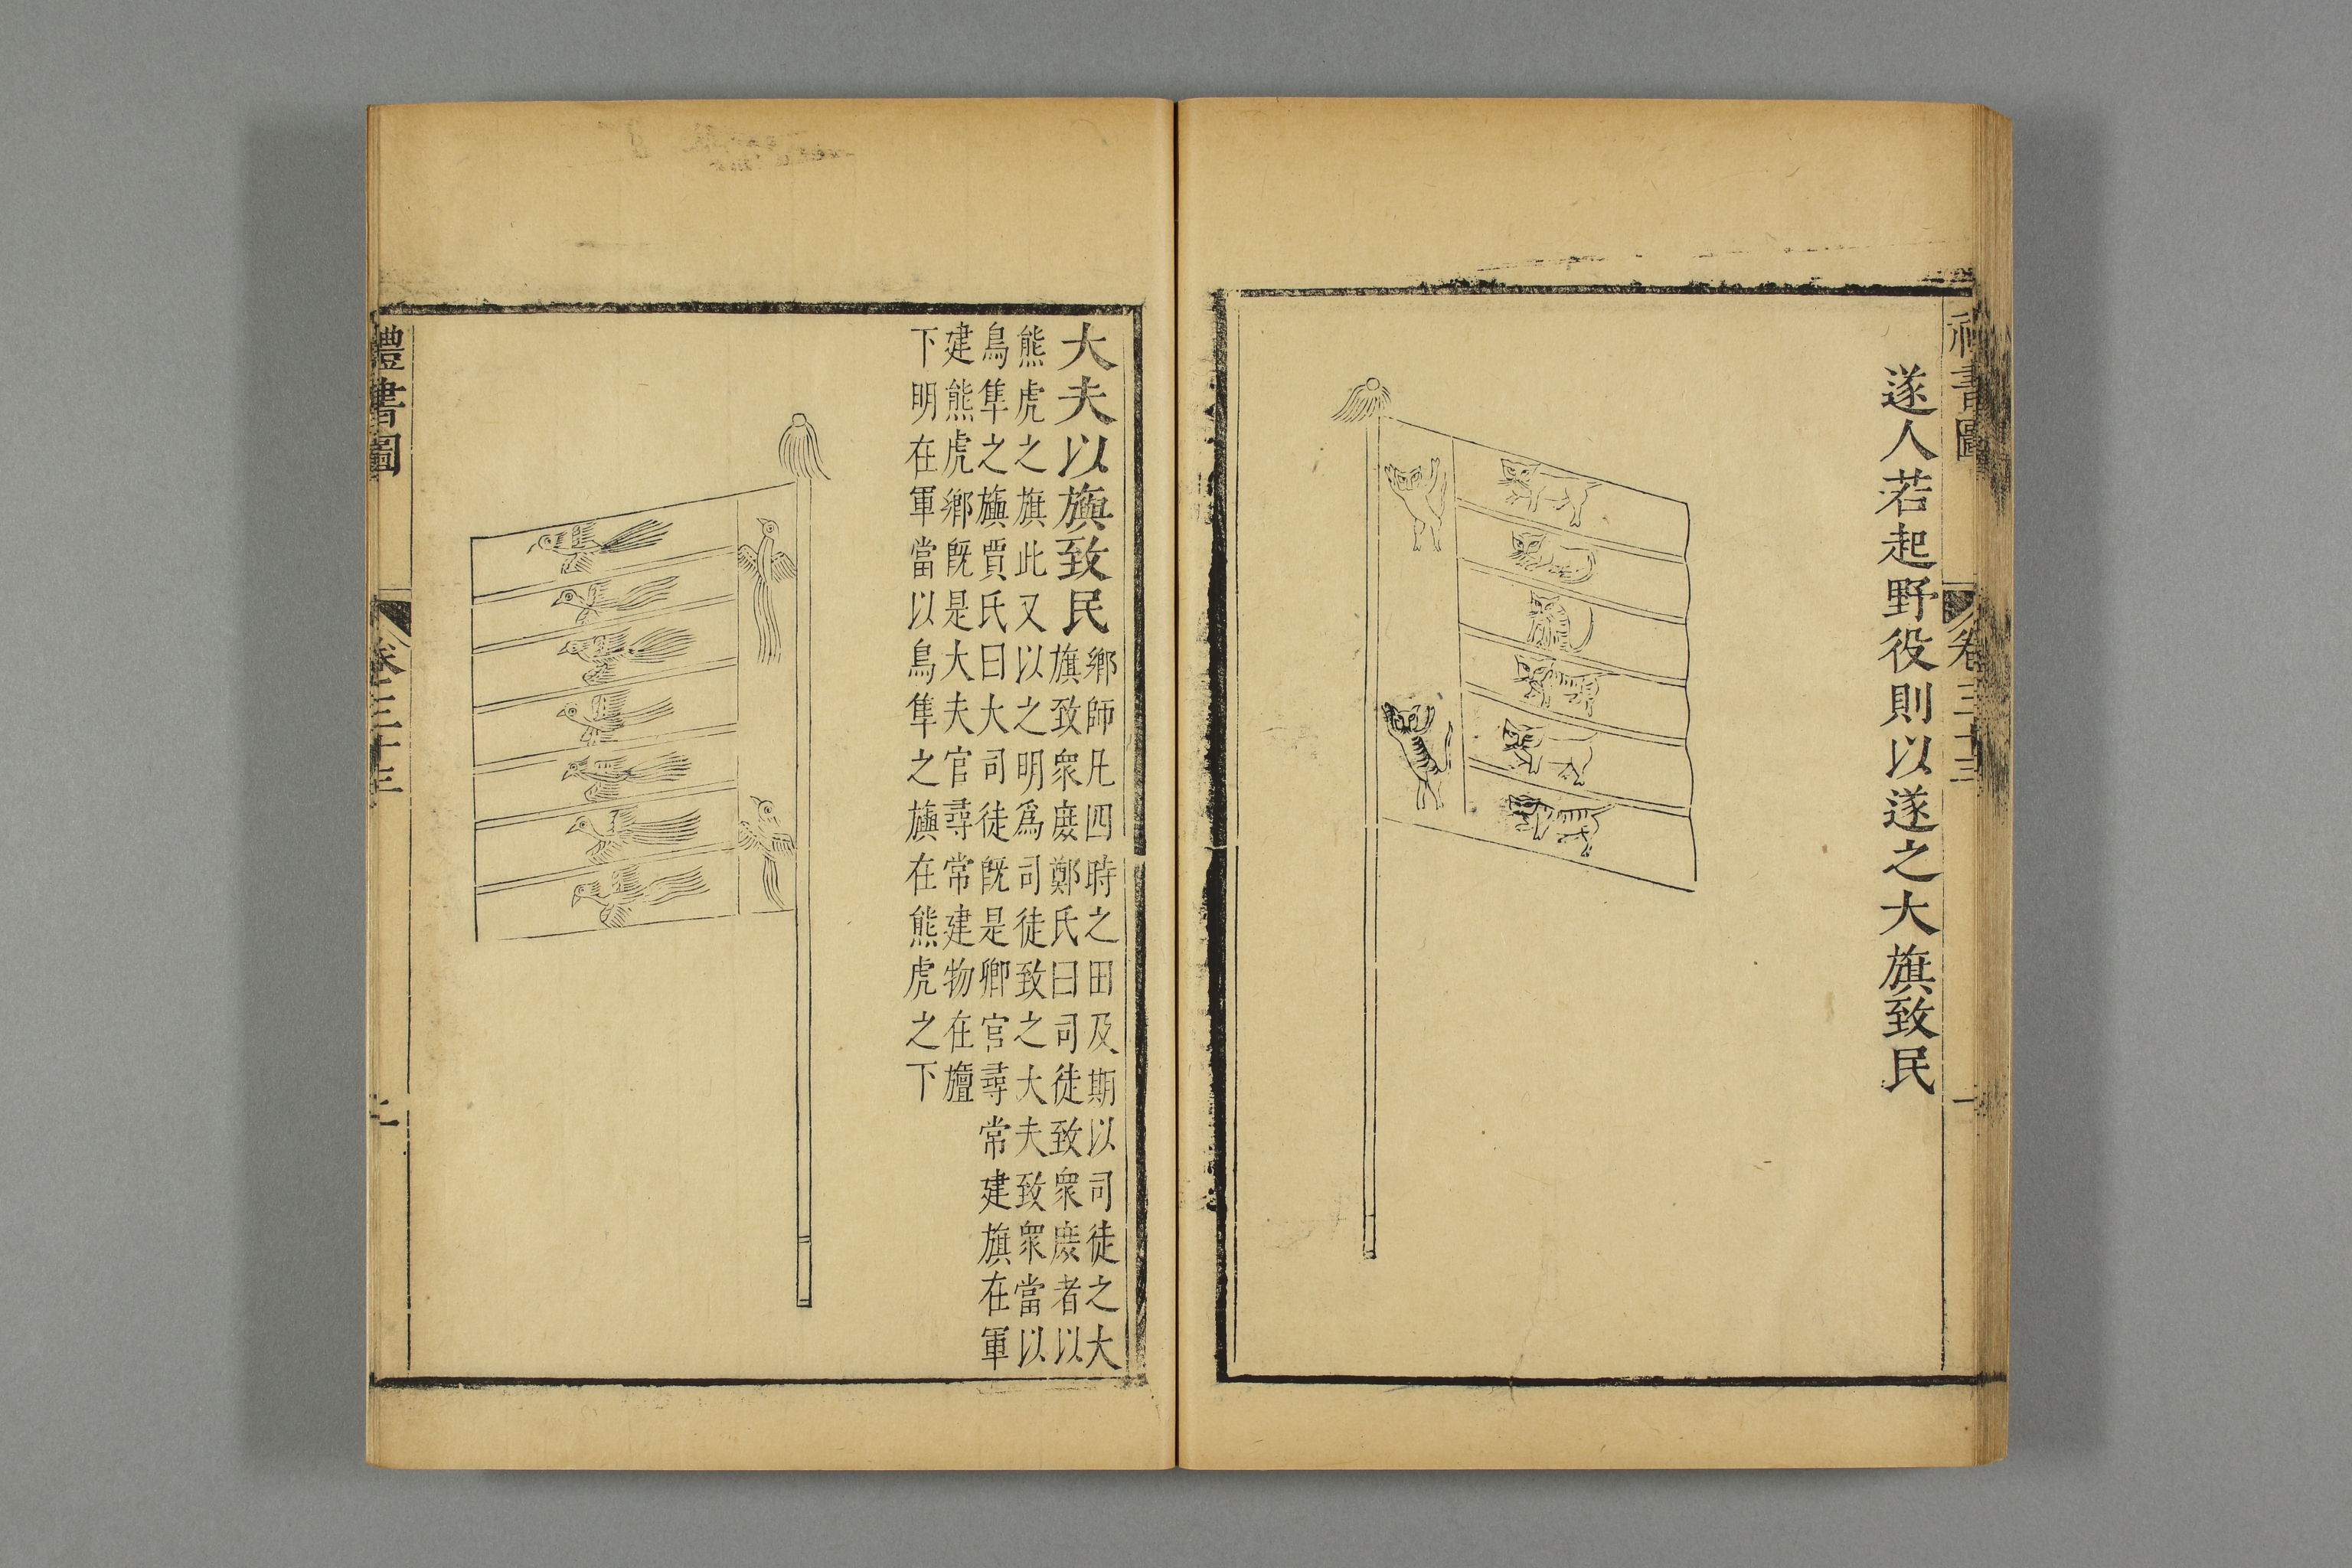 禮書圖 卷三十三 一
遂人若起野役則以遂之大旗致民
大夫以旟致民鄉師凡四時之田及期以司徒之大
旗致衆庶鄭氏曰司徒致衆庶者以
熊虎之旗此又以之明爲司徒致之大夫致衆當以
鳥隼之旟賈氏曰大司徒旣是卿官尋常建旗在軍
建熊虎鄉旣是大夫官尋常建物在旜
下明在軍當以鳥隼之旟在熊虎之下
禮書圖 卷三十三 二